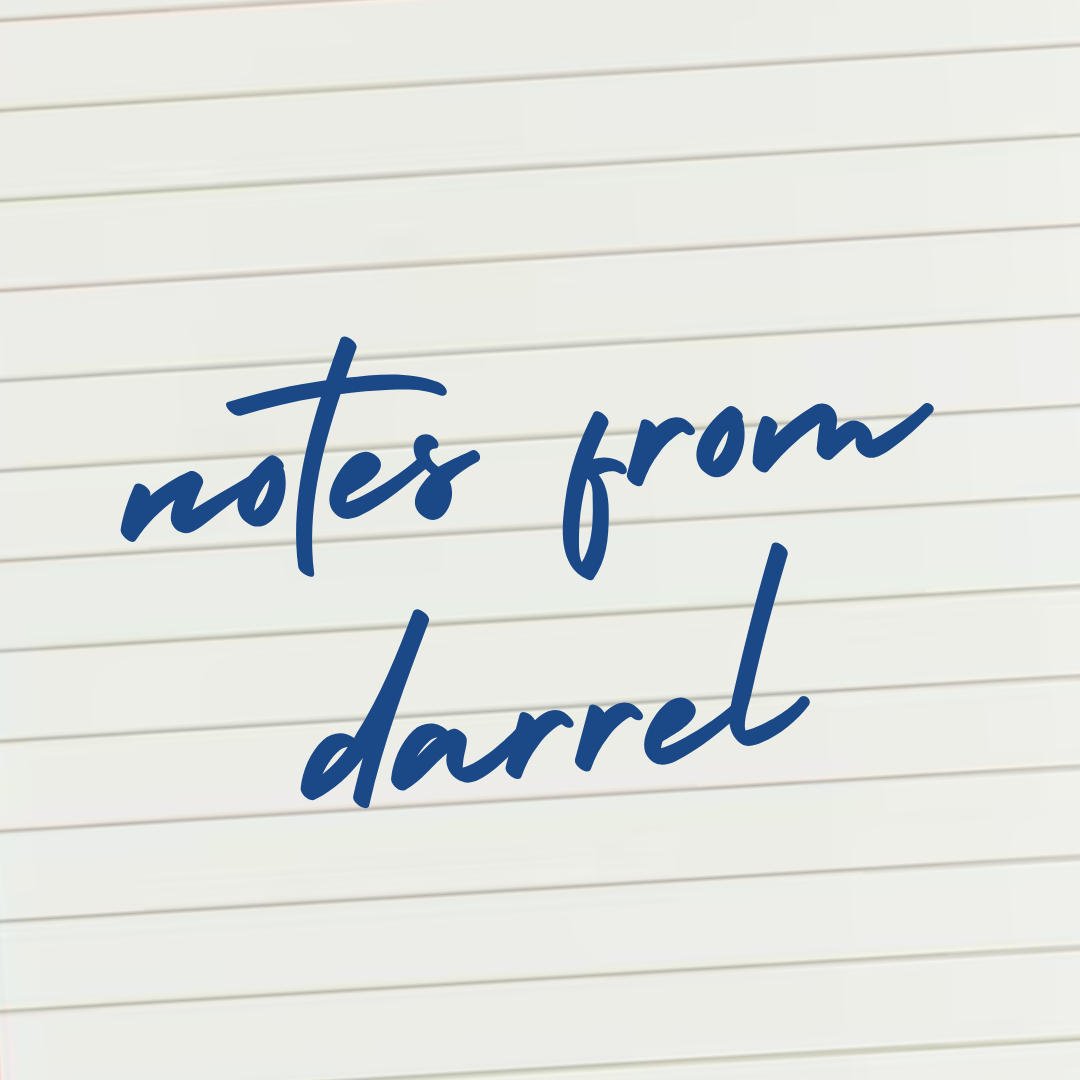 notes from
darrel